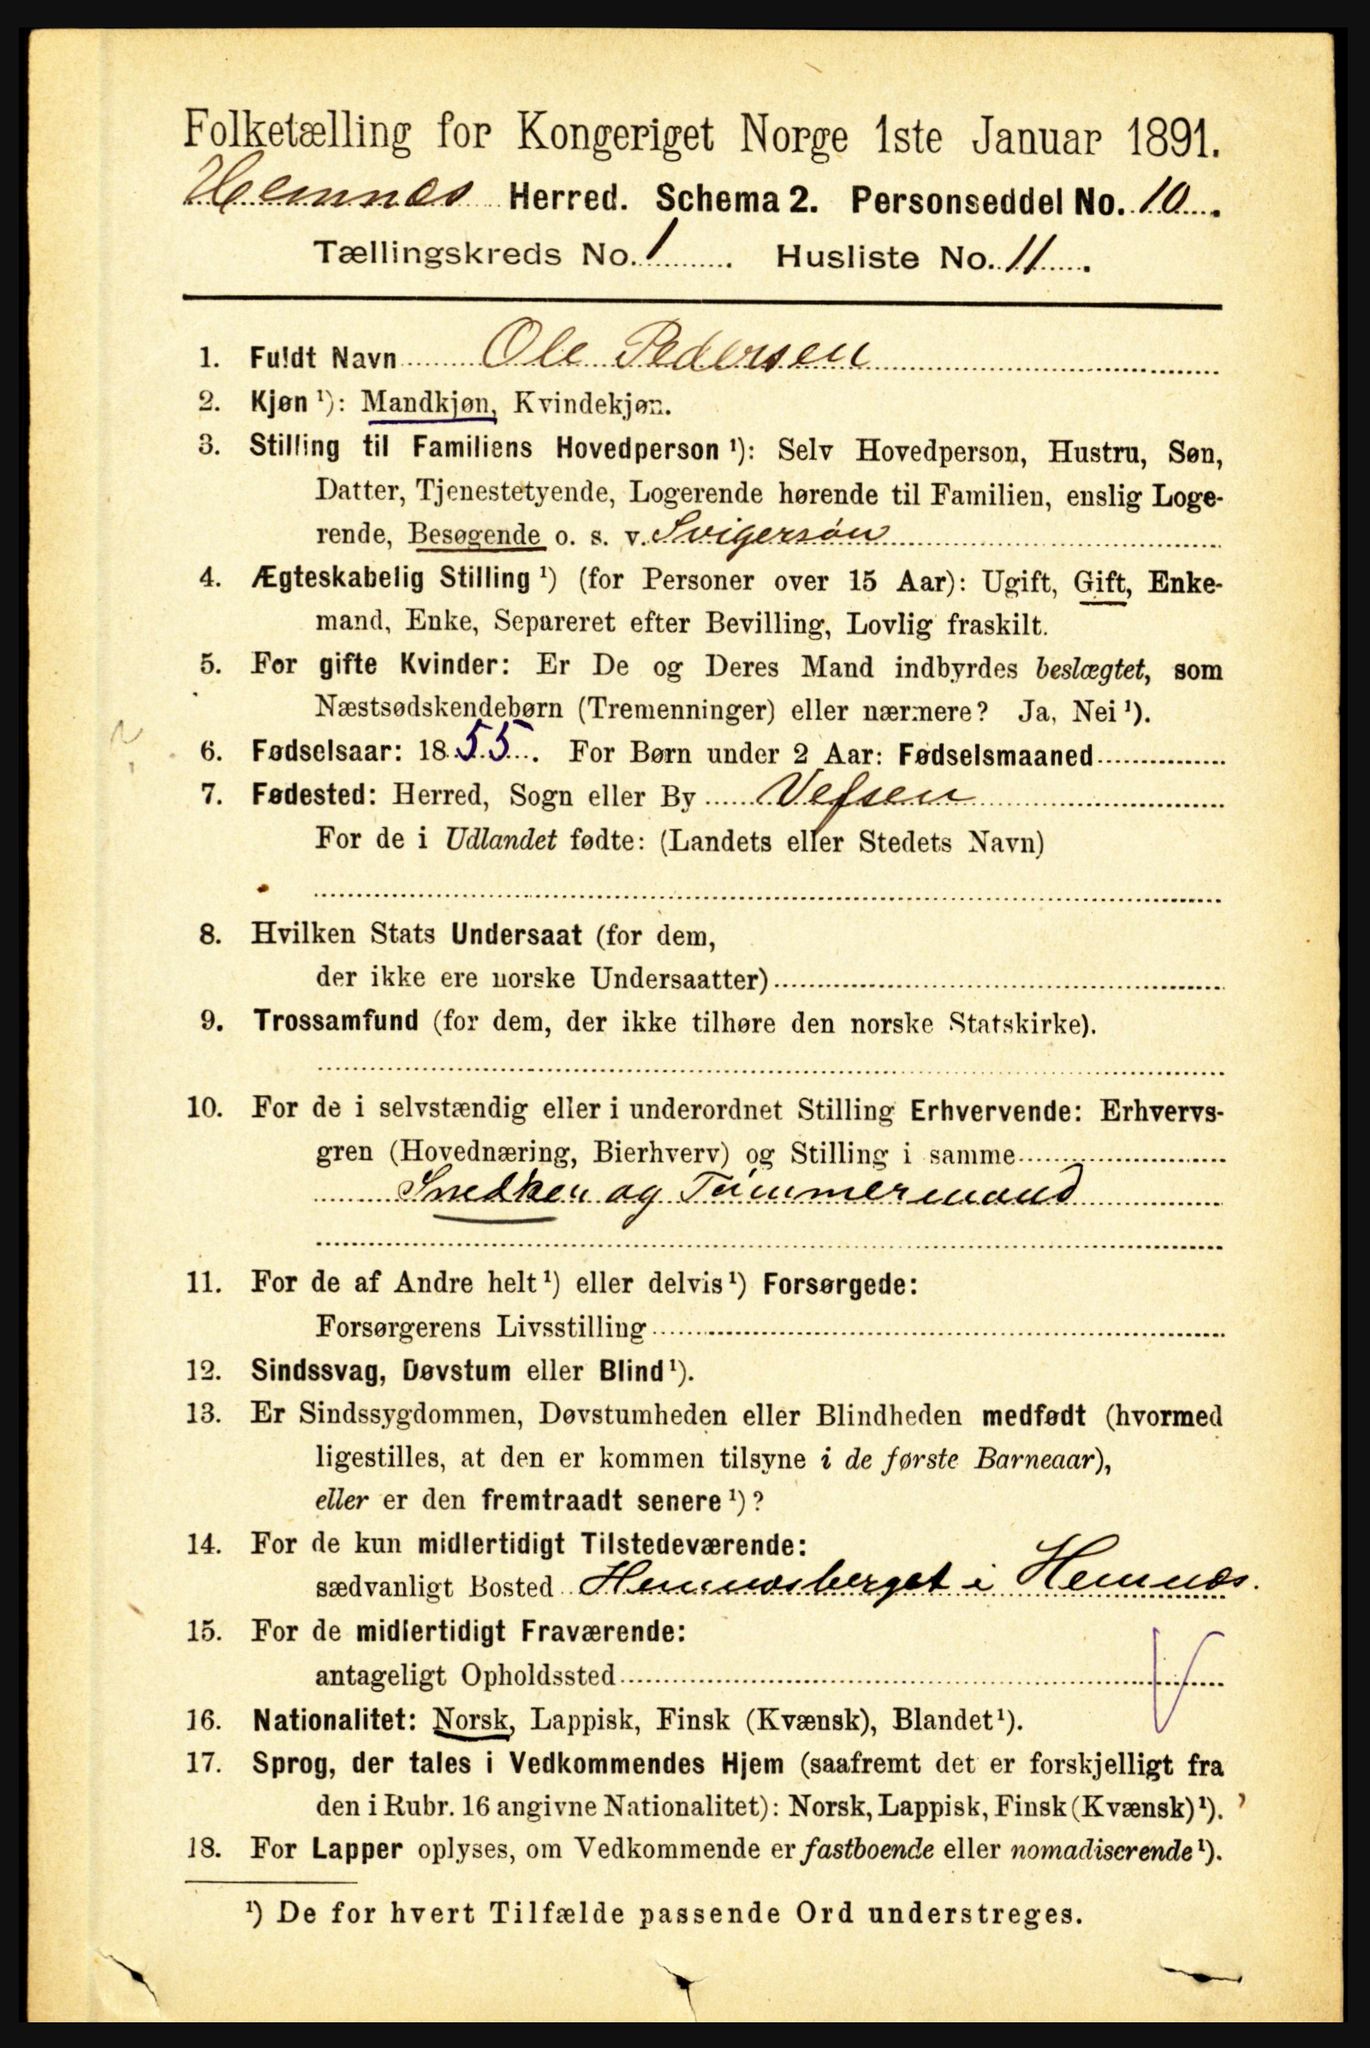 Folketælling for Kongeriget Norge 1ste Januar 1891.
Hemnæs Herred. Schema 2. Personseddel No. 10.
Tællingskreds No. 1. Husliste No. 11.
1. Fuldt Navn Ole Pedersen
2. Kjøn ¹): Mandkjøn, Kvindekjøn.
3. Stilling til Familiens Hovedperson ¹): Selv Hovedperson, Hustru, Søn,
Datter, Tjenestetyende, Logerende hørende til Familien, enslig Loge-
rende, Besøgende o. s. v. Svigersøn
4. Ægteskabelig Stilling ¹) (for Personer over 15 Aar): Ugift, Gift, Enke-
mand, Enke, Separeret efter Bevilling, Lovlig fraskilt.
5. For gifte Kvinder: Er De og Deres Mand indbyrdes beslægtet, som
Næstsødskendebørn (Tremenninger) eller nærmere? Ja, Nei ¹).
6. Fødselsaar: 1855. For Børn under 2 Aar: Fødselsmaaned
7. Fødested: Herred, Sogn eller By Vefsen
For de i Udlandet fødte: (Landets eller Stedets Navn)
8. Hvilken Stats Undersaat (for dem,
der ikke ere norske Undersaatter)
9. Trossamfund (for dem, der ikke tilhøre den norske Statskirke).
10. For de i selvstændig eller i underordnet Stilling Erhvervende: Erhvervs-
gren (Hovednæring, Bierhverv) og Stilling i samme
Snedker og Tømmermand
11. For de af Andre helt ¹) eller delvis ¹) Forsørgede:
Forsørgerens Livsstilling
12. Sindssvag, Døvstum eller Blind ¹).
13. Er Sindssygdommen, Døvstumheden eller Blindheden medfødt (hvormed
ligestilles, at den er kommen tilsyne i de første Barneaar),
eller er den fremtraadt senere ¹)?
14. For de kun midlertidigt Tilstedeværende:
sædvanligt Bosted Hemnæsberget i Hemnæs.
15. For de midlertidigt Fraværende:
antageligt Opholdssted
16. Nationalitet: Norsk, Lappisk, Finsk (Kvænsk), Blandet ¹).
17. Sprog, der tales i Vedkommendes Hjem (saafremt det er forskjelligt fra
den i Rubr. 16 angivne Nationalitet): Norsk, Lappisk, Finsk (Kvænsk) ¹).
18. For Lapper oplyses, om Vedkommende er fastboende eller nomadiserende ¹).
¹) De for hvert Tilfælde passende Ord understreges.